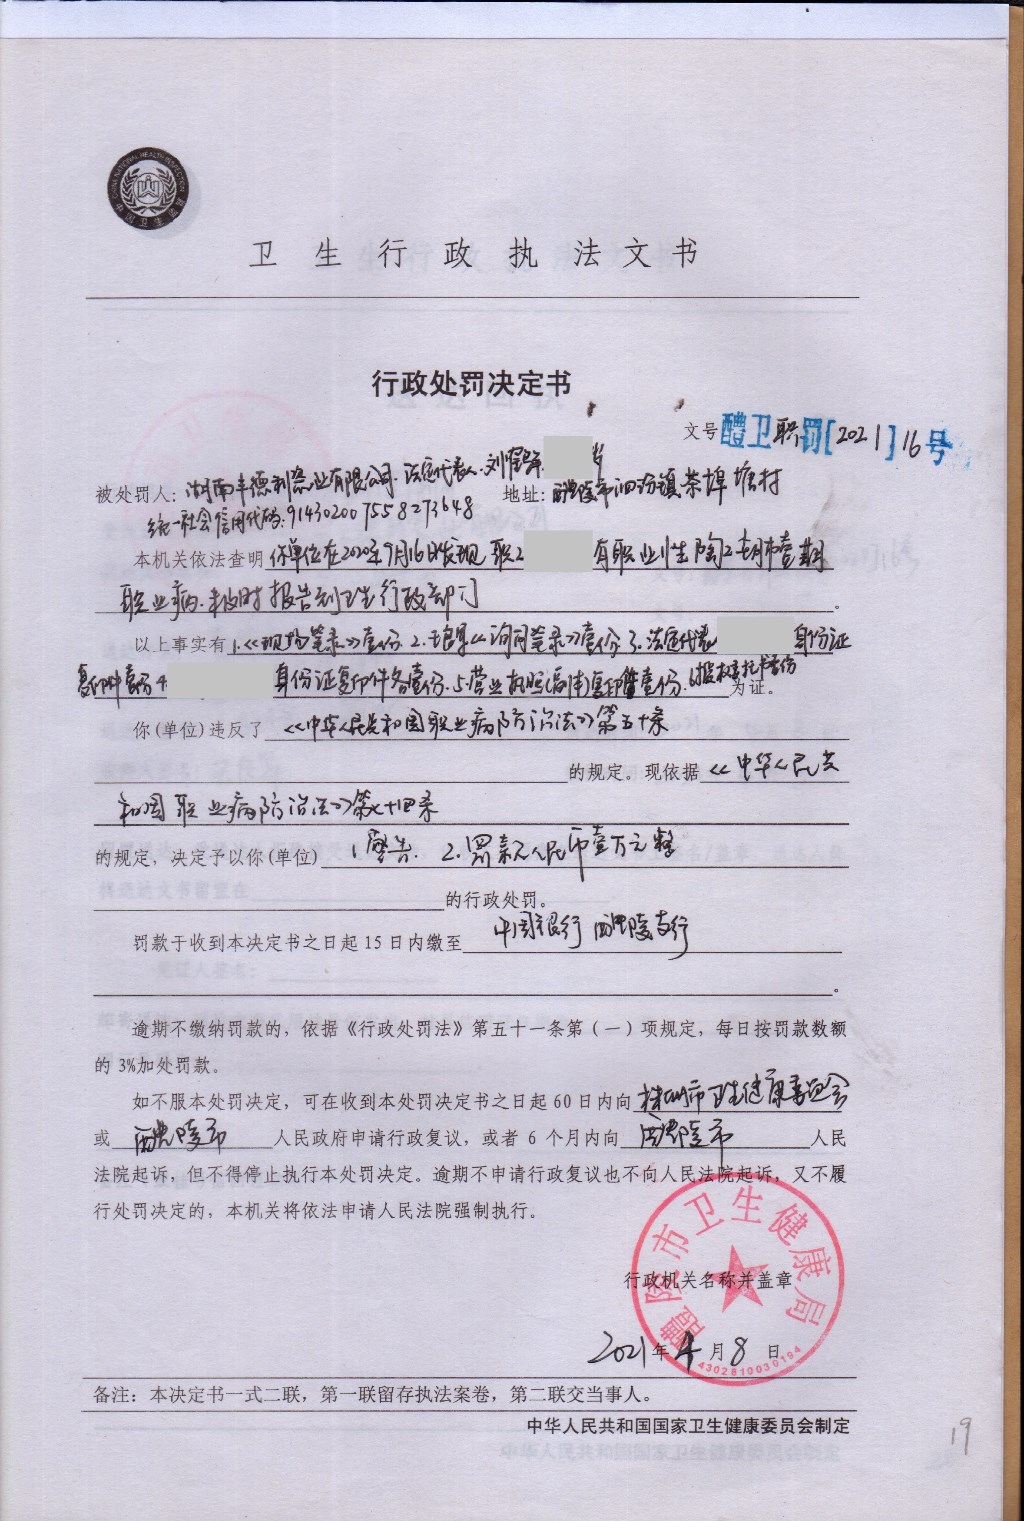 卫生行政执法文书
行政处罚决定书
文号 醴卫职罚[2021]16号
被处罚人：湖南丰德利瓷业有限公司.法定代表人.刘 岁 地址：醴陵市泗汾镇茶埠塘村
统一社会信用代码:914302007558273648
本机关依法查明 你单位在2020年9月16日发现 职工 有职业性陶工尘肺壹期
职业病.未及时报告到卫生行政部门。
以上事实有 1.《现场笔录》壹份 2. 《询问笔录》壹份 3.法定代表人 身份证
复印件壹份 4. 身份证复印件各壹份.5.营业执照(副本)复印件壹份. 授权委托书壹份 为证。
你(单位)违反了 《中华人民共和国职业病防治法》第五十条
的规定。现依据《中华人民共
和国职业病防治法》第七十四条
的规定，决定予以你(单位) 1.警告. 2.罚款人民币壹万元整
的行政处罚。
罚款于收到本决定书之日起15日内缴至 中国银行醴陵支行
。
逾期不缴纳罚款的，依据《行政处罚法》第五十一条第（一）项规定，每日按罚款数额
的3%加处罚款。
如不服本处罚决定，可在收到本处罚决定书之日起60日内向 株洲市卫生健康委员会
或 醴陵市 人民政府申请行政复议，或者 6 个月内向 醴陵市 人民
法院起诉，但不得停止执行本处罚决定。逾期不申请行政复议也不向人民法院起诉，又不履
行处罚决定的，本机关将依法申请人民法院强制执行。
醴陵市卫生健康局
行政机关名称并盖章
2021年4月8日
4302810030194
备注：本决定书一式二联，第一联留存执法案卷，第二联交当事人。
中华人民共和国国家卫生健康委员会制定
19